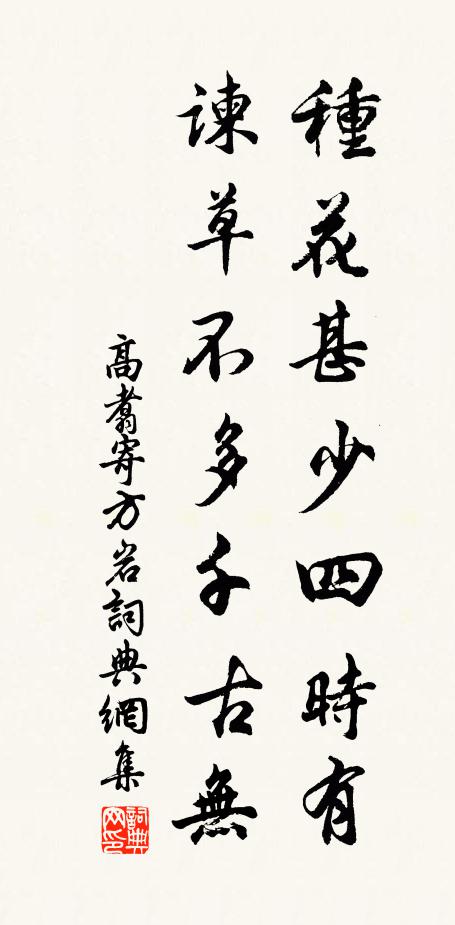 種花甚少四時有
諫草不多千古無
高翥寄方岩詞典網集
詞典网印